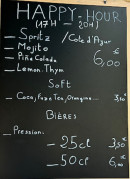 HAPPY-HOUR
(17H - 20H)
- Spritz / Côte d'Azur
- Mojito
- Piña Colada 6,00 €
- Lemon. Thym
SOFT
- Coca, Fuze Tea, Orangina... 3,50
BIÈRES
- Pression.
- 25cl 3,50
- 50cl 6,00 €